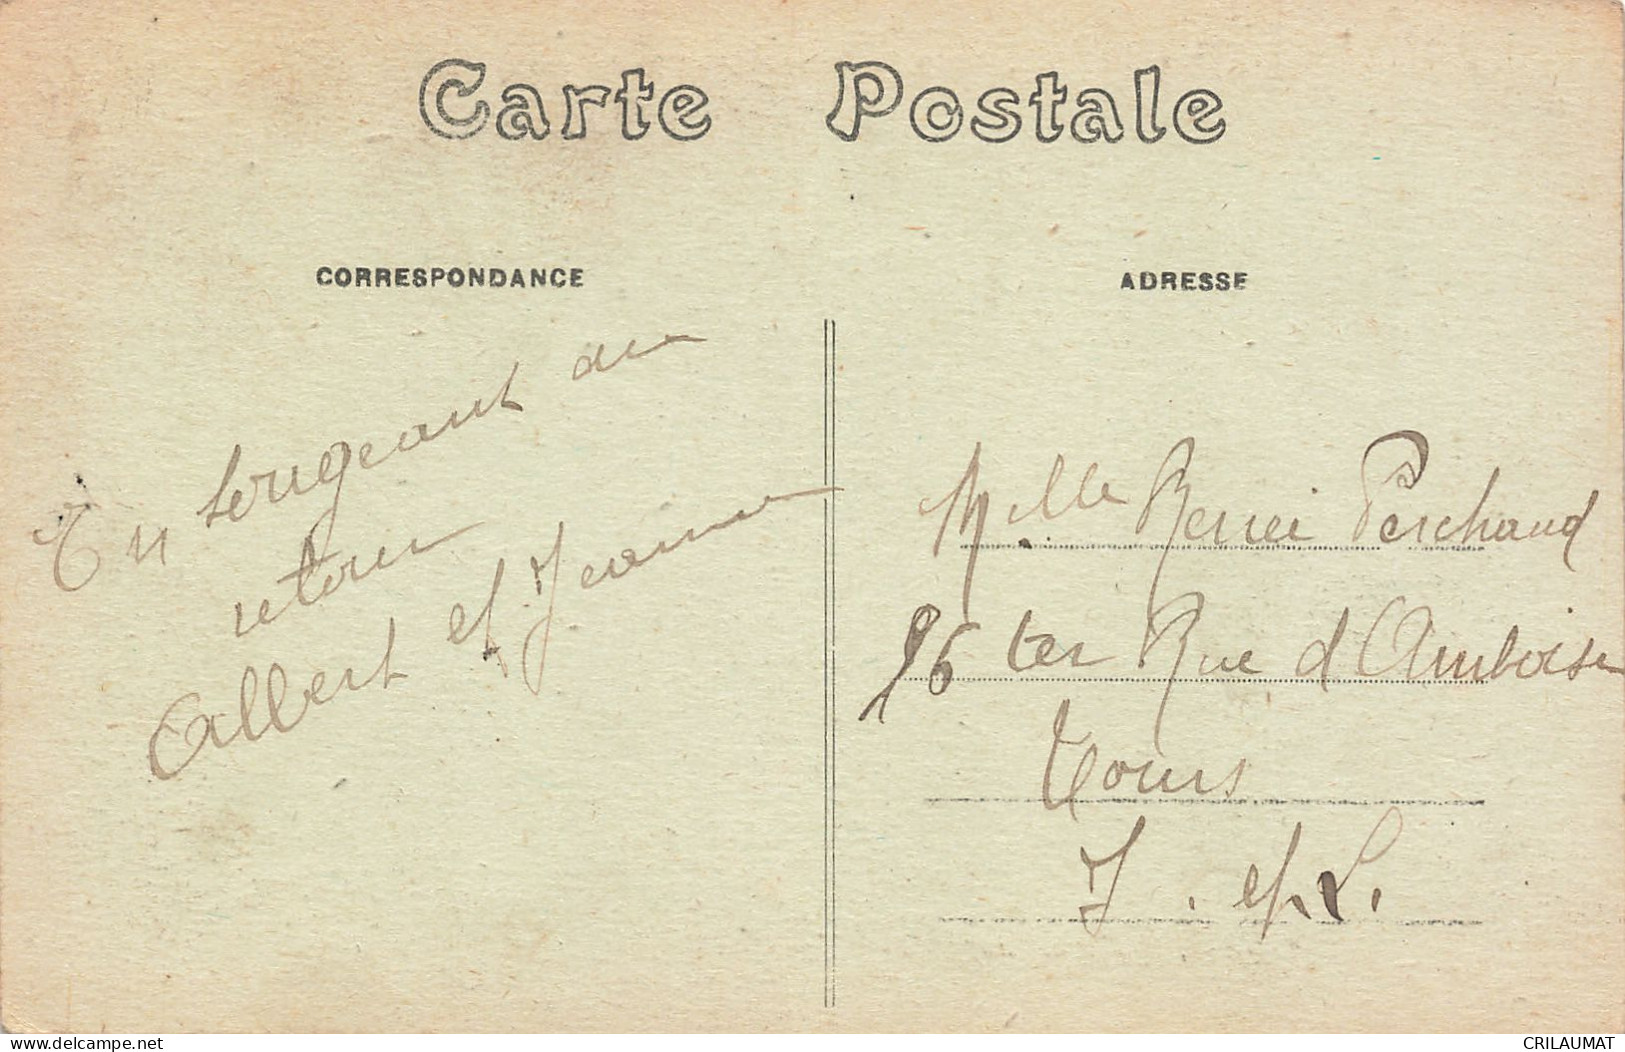 Carte Postale
CORRESPONDANCE
ADRESSE
En songeant au
retour
Albert et Jeanne
Mlle Renée Perchaud
26 ter Rue d'Amboise
Tours
I. et L.
www.delcampe.net
CRILAUMAT